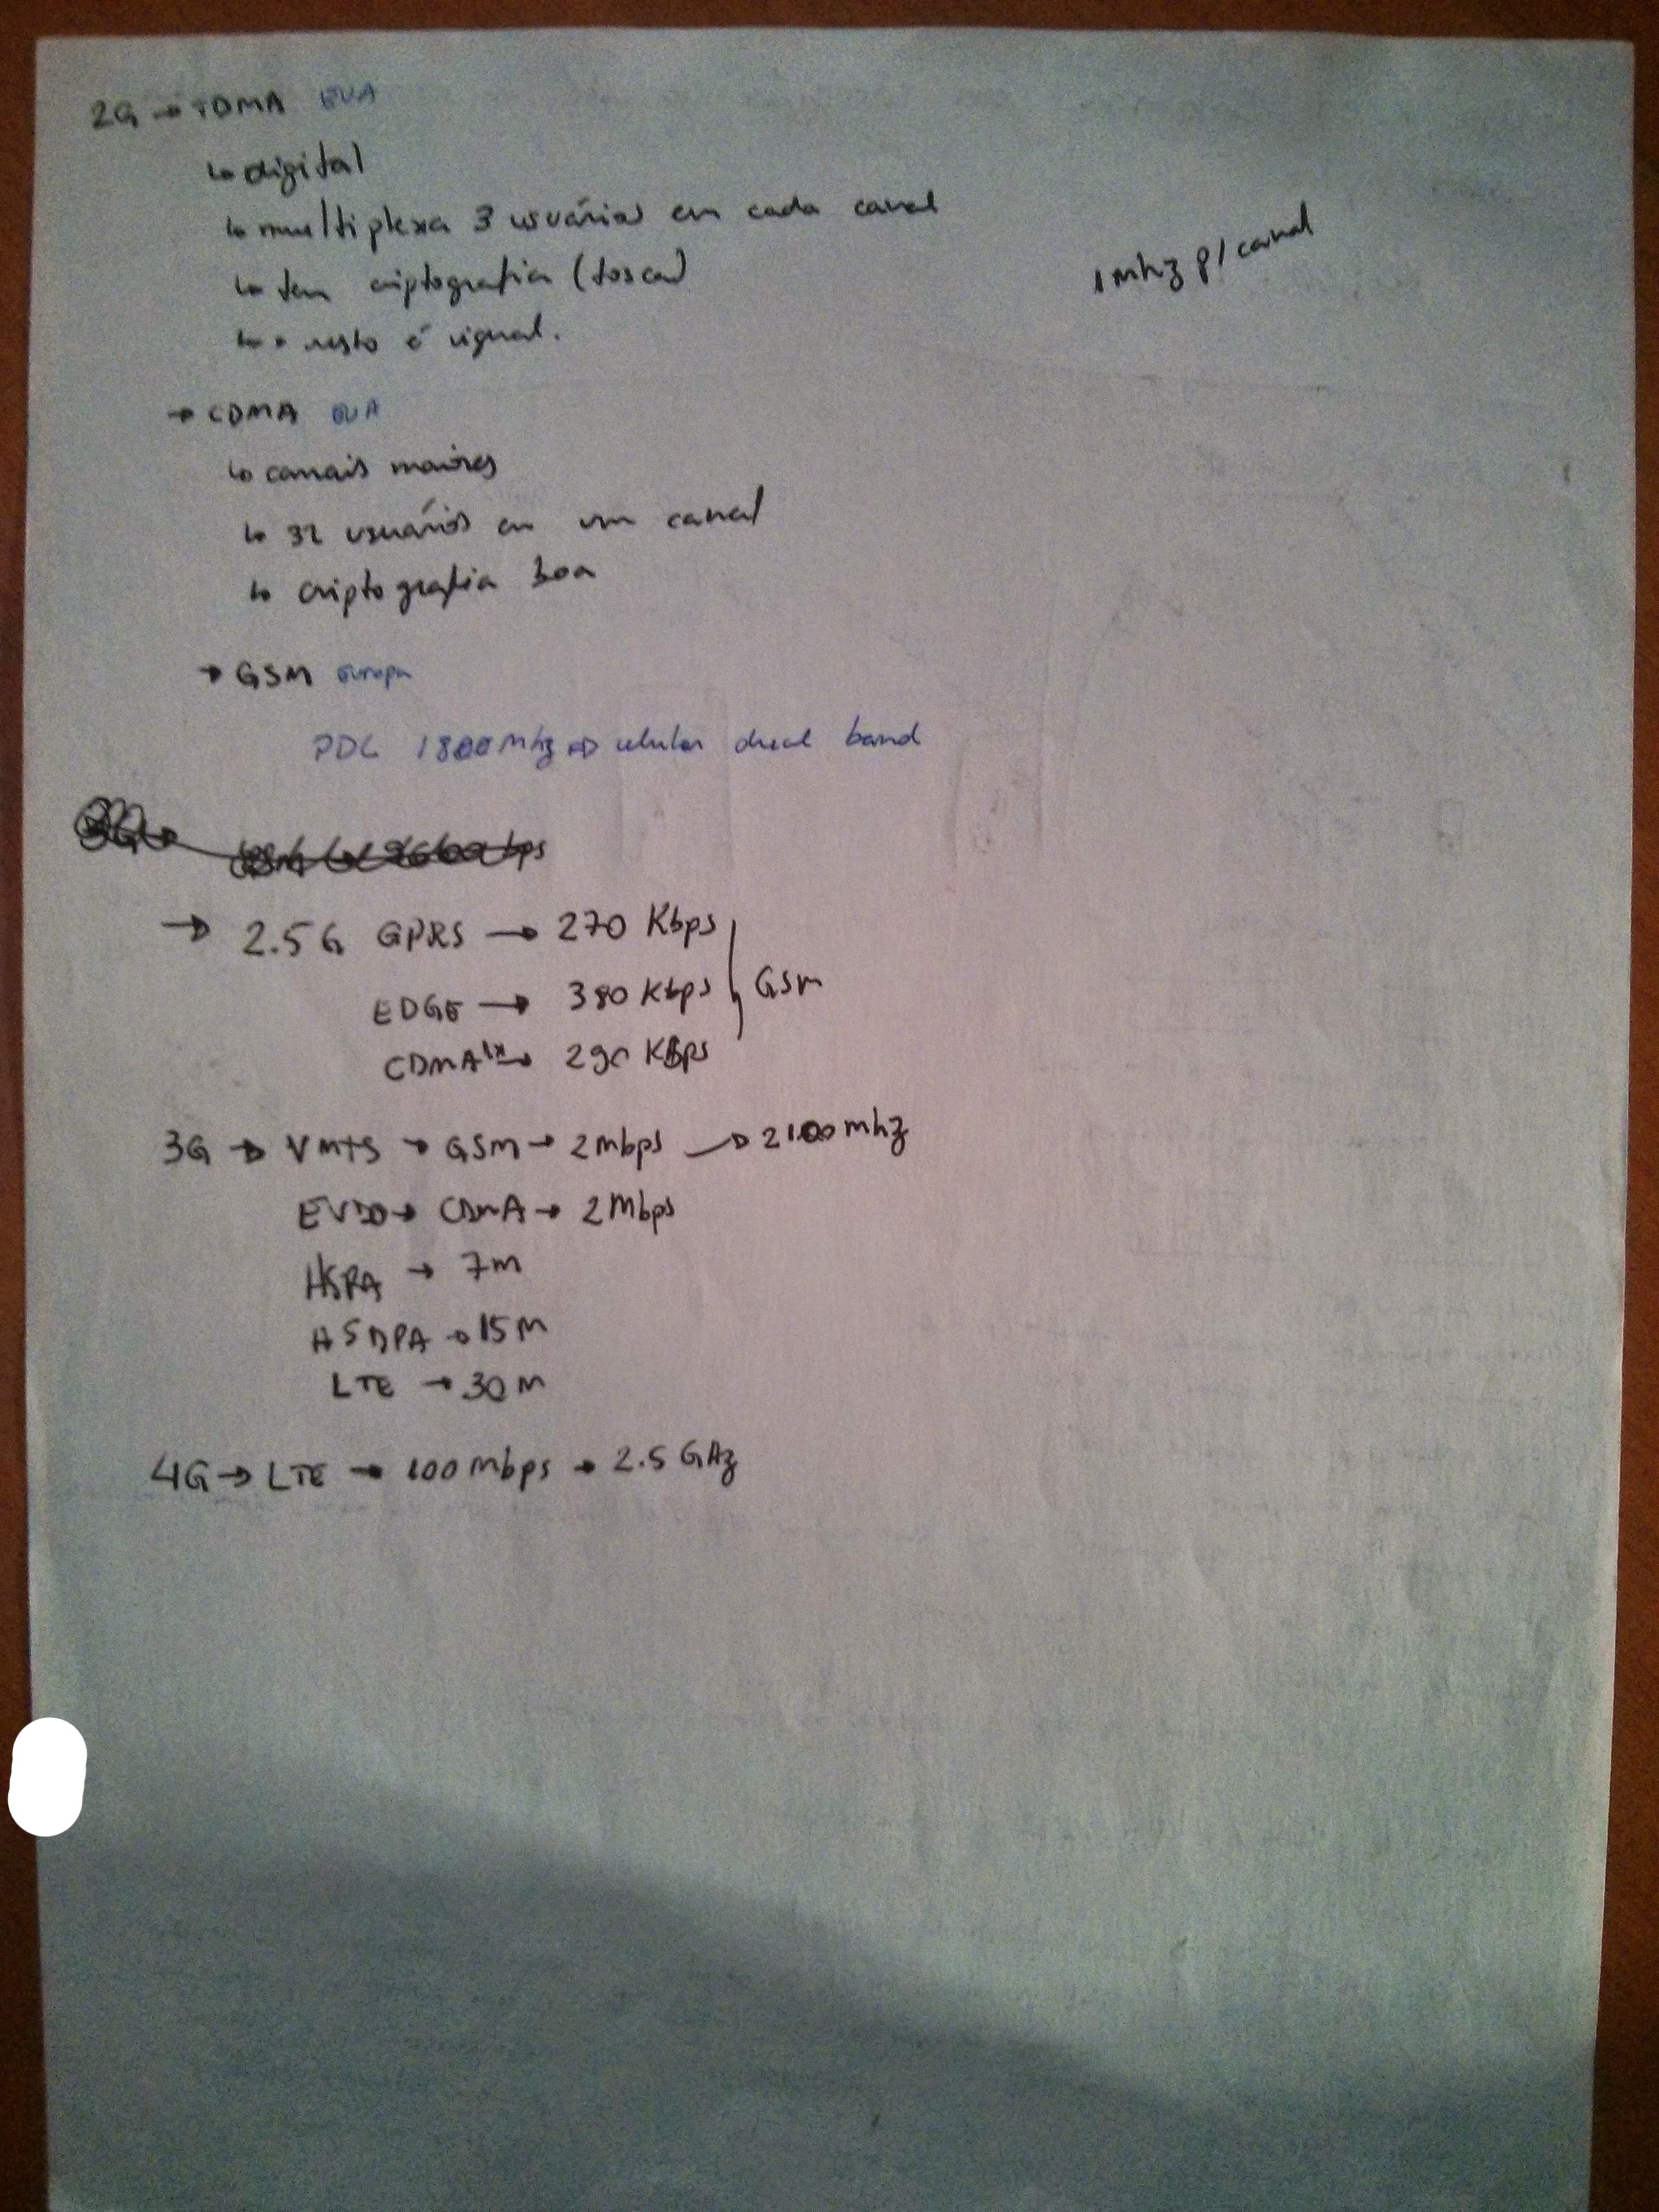 2G → TDMA EUA
↳ digital
↳ multiplexa 3 usuários em cada canal
1 mhz p/ canal
↳ tem criptografia (tosca)
↳ o resto é igual.
→ CDMA EUA
↳ canais maiores
↳ 32 usuários em um canal
↳ criptografia boa
→ GSM Europa
PDC 1800Mhz → celular dual band
→ 2.5G GPRS → 270 Kbps
EDGE → 380 Kbps
GSM
CDMA 1x → 290 Kbps
3G → VMTS → GSM → 2mbps → 2100mhz
EVDO → CDMA → 2Mbps
HSPA → 7m
HSDPA → 15M
LTE → 30M
4G → LTE → 100mbps → 2.5 GHz